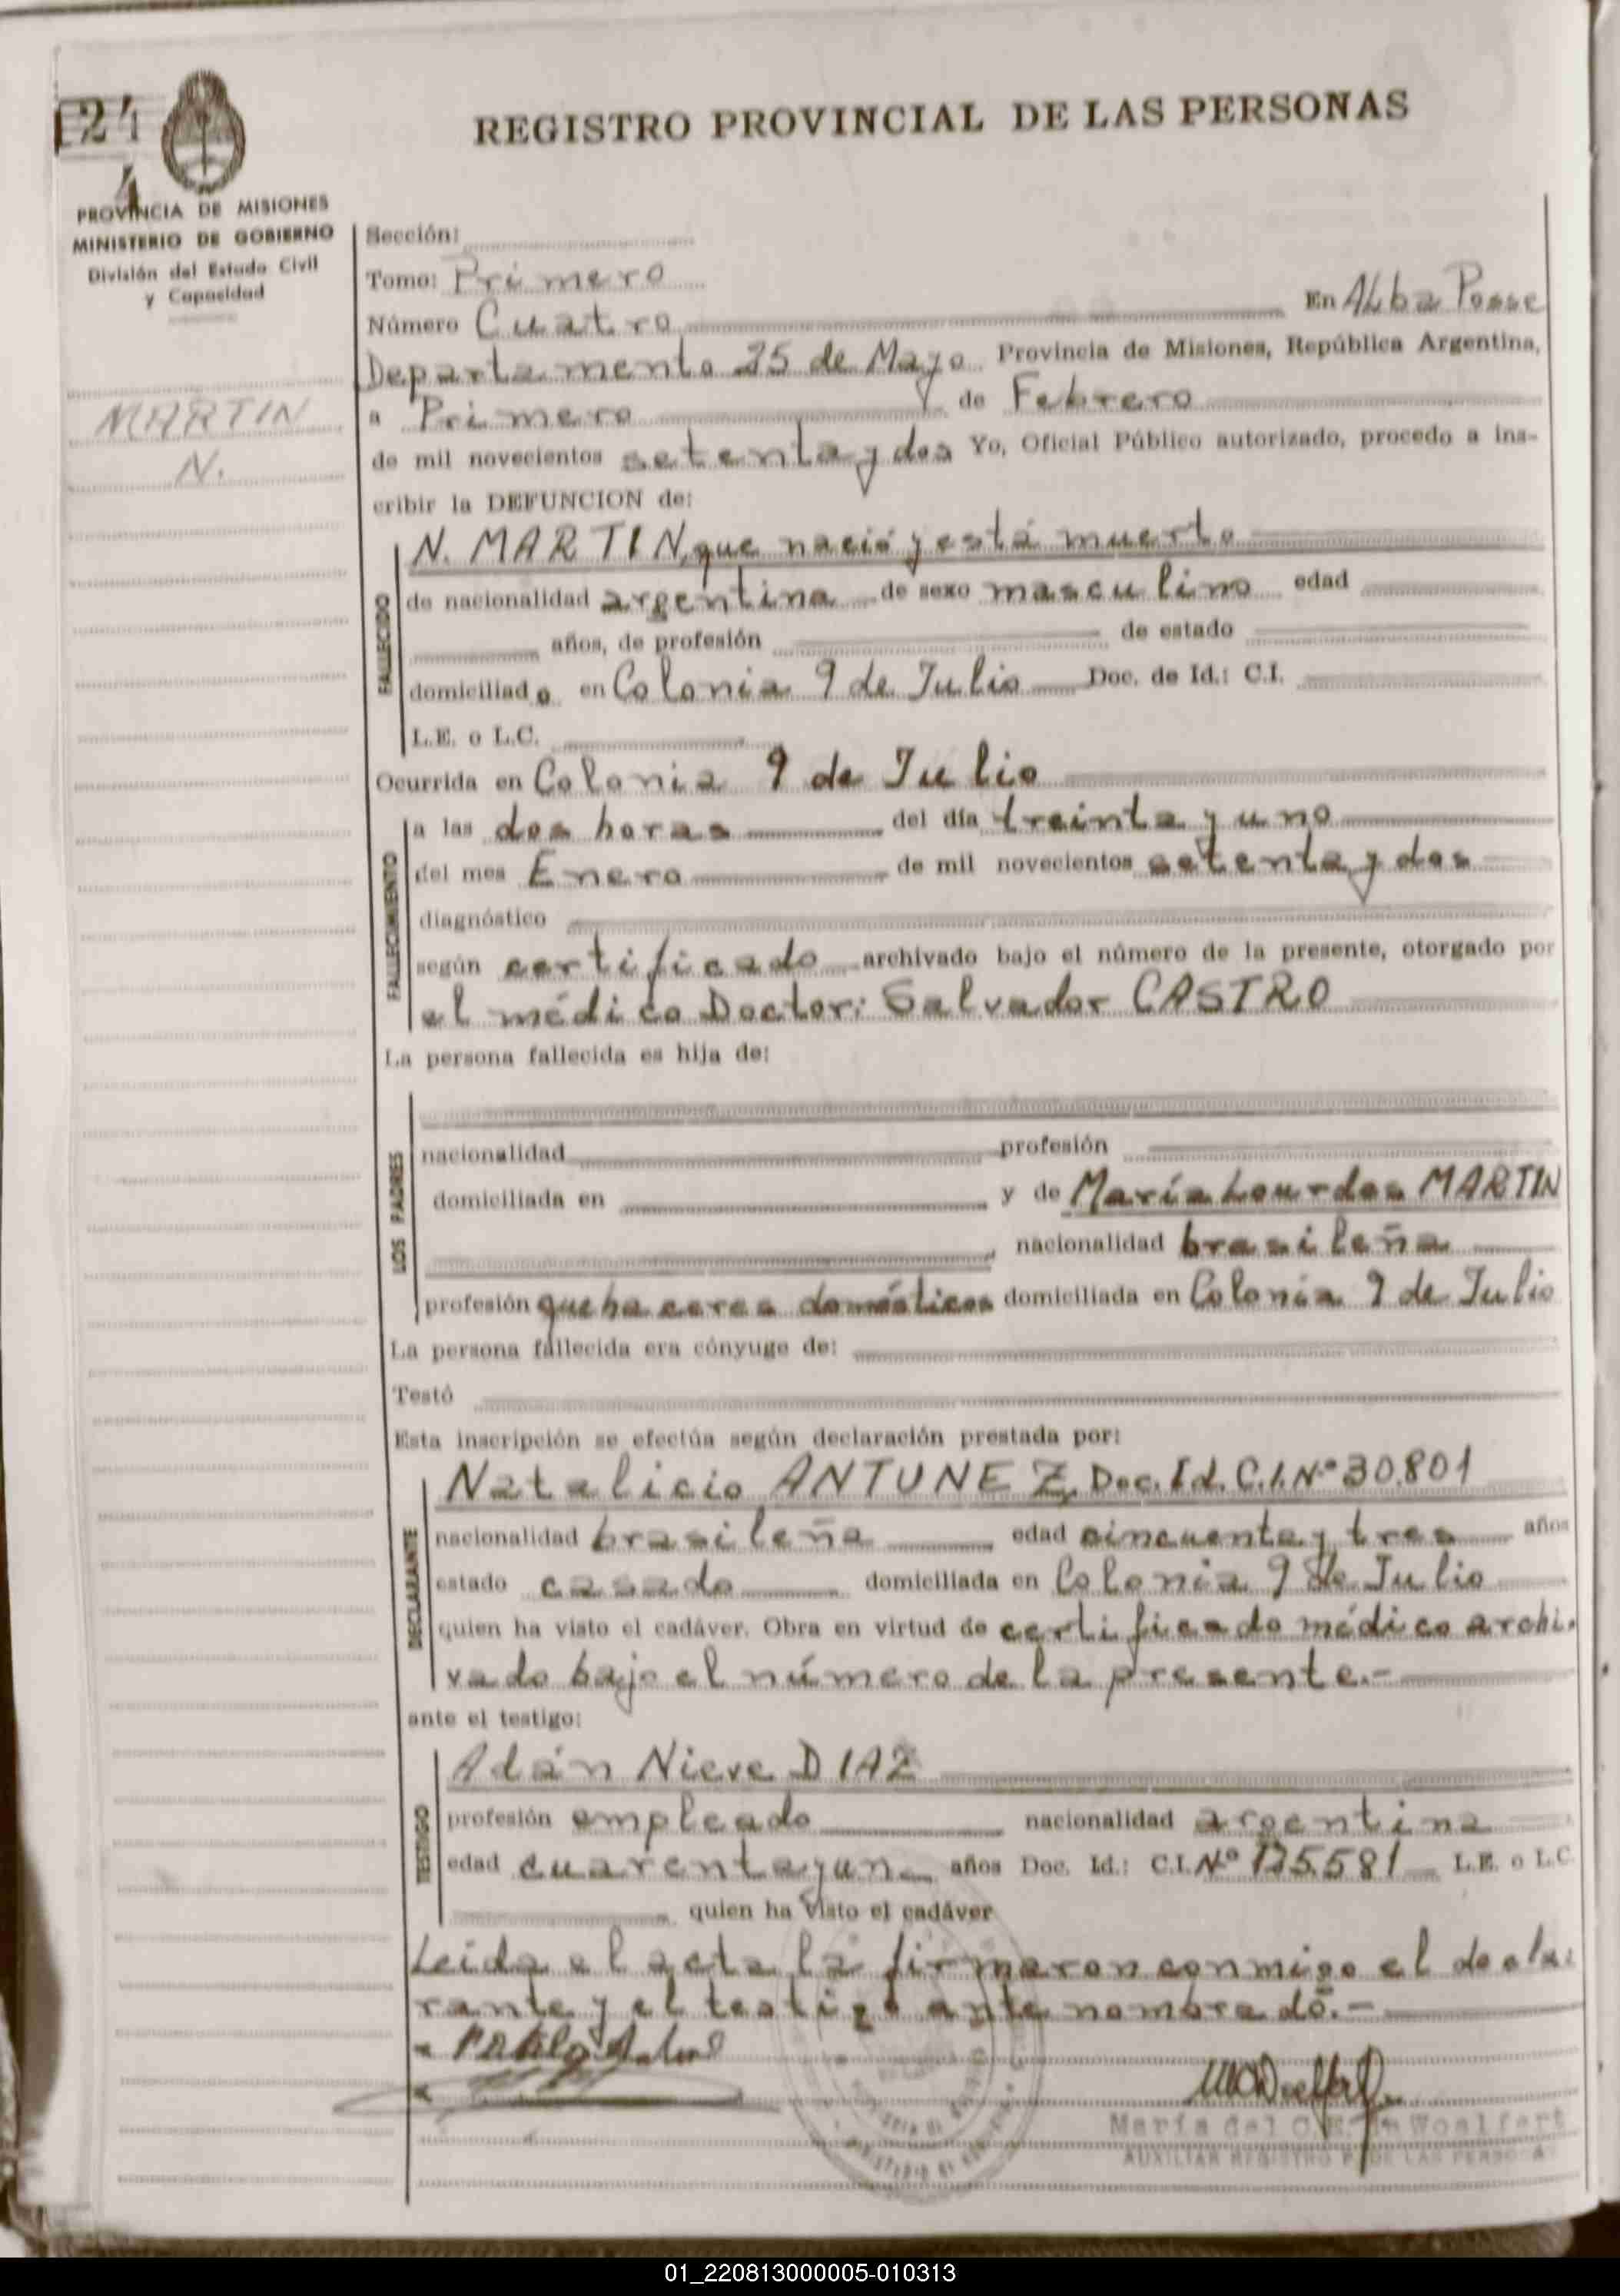 24
4
REGISTRO PROVINCIAL DE LAS PERSONAS
PROVINCIA DE MISIONES
MINISTERIO DE GOBIERNO
División del Estado Civil
y Capacidad
MARTIN
N.
Sección:
Tomo: Primero
Número Cuatro En Alba Posse
Departamento 25 de Mayo Provincia de Misiones, República Argentina,
a Primero de Febrero
de mil novecientos setenta y dos Yo, Oficial Público autorizado, procedo a ins-
cribir la DEFUNCION de:
FALLECIDO
N. MARTIN, que nació y está muerto
de nacionalidad argentina de sexo masculino edad
años, de profesión de estado
domiciliado en Colonia 9 de Julio Doc. de Id.: C.I.
L.E. o L.C.
Ocurrida en Colonia 9 de Julio
FALLECIMIENTO
a las dos horas del día treinta y uno
del mes Enero de mil novecientos setenta y dos
diagnóstico
según certificado archivado bajo el número de la presente, otorgado por
el médico Doctor: Salvador CASTRO
La persona fallecida es hija de:
LOS PADRES
nacionalidad profesión
domiciliada en y de María Lourdes MARTIN
nacionalidad brasileña
profesión quehaceres domésticos domiciliada en Colonia 9 de Julio
La persona fallecida era cónyuge de:
Testó
Esta inscripción se efectúa según declaración prestada por:
DECLARANTE
Natalicio ANTUNEZ, Doc. Id. C.I. Nº 30.801
nacionalidad brasileña edad cincuenta y tres años
estado casado domiciliada en Colonia 9 de Julio
quien ha visto el cadáver. Obra en virtud de certificado médico archi-
vado bajo el número de la presente.-
ante el testigo:
TESTIGO
Adán Nieve DIAZ
profesión empleado nacionalidad argentina
edad cuarenta y un años Doc. Id.: C.I. Nº 175.581 L.E. o L.C.
quien ha visto el cadáver
Leida el acta la firmaron conmigo el decla-
rante y el testigo ante nombrado.-
María del C. E. Woalfert
AUXILIAR REGISTRO P. DE LAS PERSONAS
01_220813000005-010313